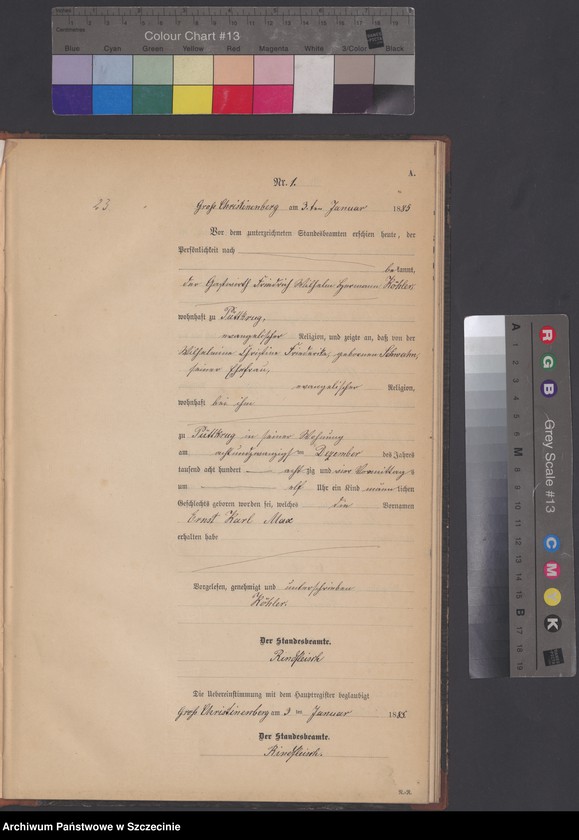 Colour Chart #13
Blue Cyan Green Yellow Red Magenta White 3/Color Black
A.
Nr. 1.
23.
Groß Christinenberg am 3ten Januar 1885
Vor dem unterzeichneten Standesbeamten erschien heute, der
Persönlichkeit nach
bekannt,
der Gastwirth Friedrich Wilhelm Hermann Köhler
wohnhaft zu Püttkrug,
evangelischer Religion, und zeigte an, daß von der
Wilhelmine Christine Friederike, geborenen Schwahn,
seiner Ehefrau,
evangelischer Religion,
wohnhaft bei ihm
zu Püttkrug in seiner Wohnung
am achtundzwanzigsten Dezember des Jahres
tausend acht hundert achtzig und vier Vormittags
um elf Uhr ein Kind männlichen
Geschlechts geboren worden sei, welches die Vornamen
Ernst Karl Max
erhalten habe
Vorgelesen, genehmigt und unterschrieben
Köhler.
Der Standesbeamte.
Rindfleisch
Die Uebereinstimmung mit dem Hauptregister beglaubigt
Groß Christinenberg am 3 ten Januar 1885.
Der Standesbeamte.
Rindfleisch.
Grey Scale #13
A 1 2 3 4 5 6 M 8 9 10 11 12 13 14 15 B 17 18 19
R G B C M Y K
Archiwum Państwowe w Szczecinie